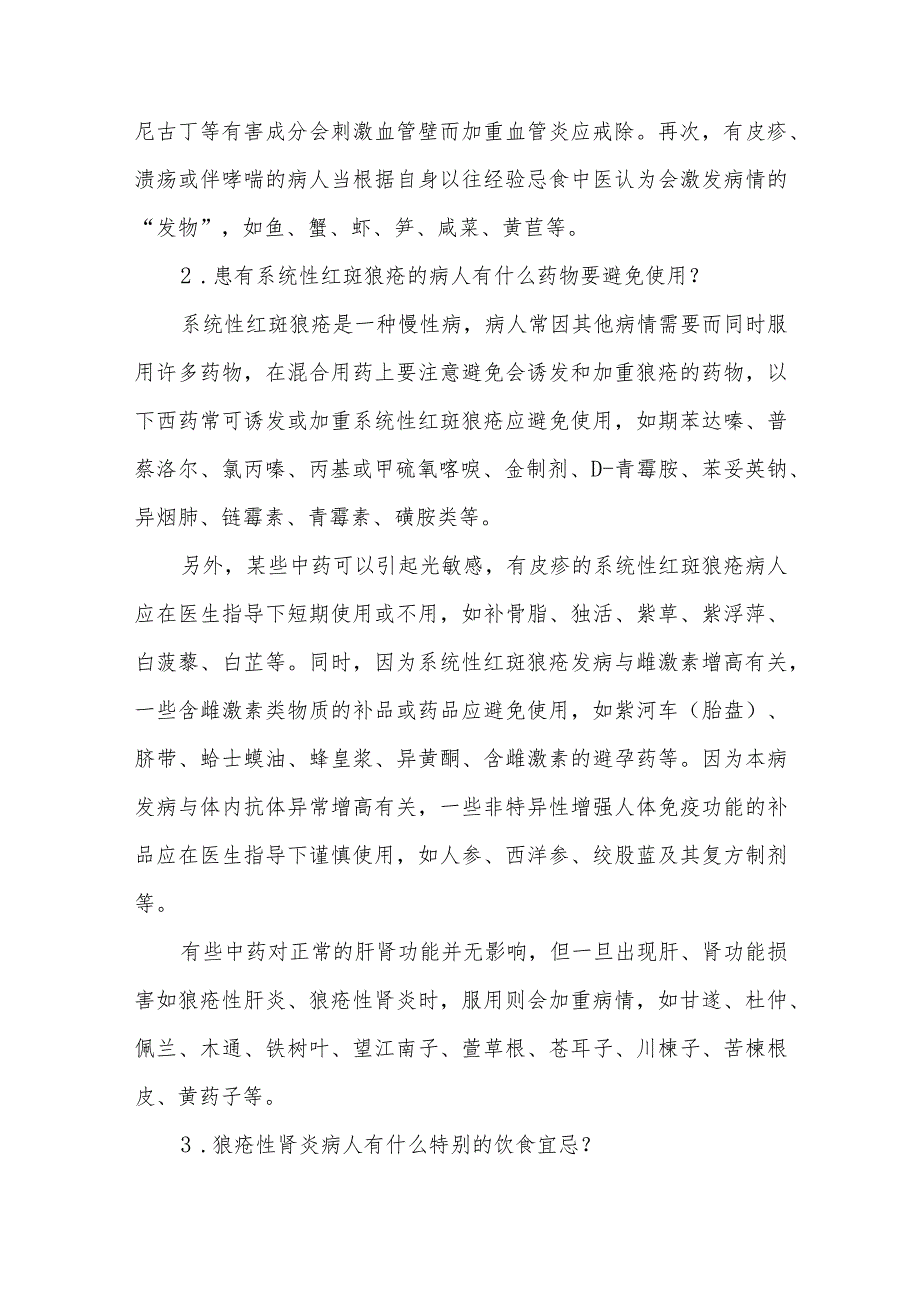 尼古丁等有害成分会刺激血管壁而加重血管炎应戒除。再次，有皮疹、
溃疡或伴哮喘的病人当根据自身以往经验忌食中医认为会激发病情的
“发物”，如鱼、蟹、虾、笋、咸菜、黄苣等。
2．患有系统性红斑狼疮的病人有什么药物要避免使用？
系统性红斑狼疮是一种慢性病，病人常因其他病情需要而同时服
用许多药物，在混合用药上要注意避免会诱发和加重狼疮的药物，以
下西药常可诱发或加重系统性红斑狼疮应避免使用，如期苯达嗪、普
蔡洛尔、氯丙嗪、丙基或甲硫氧喀唳、金制剂、D-青霉胺、苯妥英钠、
异烟肺、链霉素、青霉素、磺胺类等。
另外，某些中药可以引起光敏感，有皮疹的系统性红斑狼疮病人
应在医生指导下短期使用或不用，如补骨脂、独活、紫草、紫浮萍、
白菠藜、白芷等。同时，因为系统性红斑狼疮发病与雌激素增高有关，
一些含雌激素类物质的补品或药品应避免使用，如紫河车（胎盘）、
脐带、蛤士蟆油、蜂皇浆、异黄酮、含雌激素的避孕药等。因为本病
发病与体内抗体异常增高有关，一些非特异性增强人体免疫功能的补
品应在医生指导下谨慎使用，如人参、西洋参、绞股蓝及其复方制剂
等。
有些中药对正常的肝肾功能并无影响，但一旦出现肝、肾功能损
害如狼疮性肝炎、狼疮性肾炎时，服用则会加重病情，如甘遂、杜仲、
佩兰、木通、铁树叶、望江南子、萱草根、苍耳子、川楝子、苦楝根
皮、黄药子等。
3．狼疮性肾炎病人有什么特别的饮食宜忌？